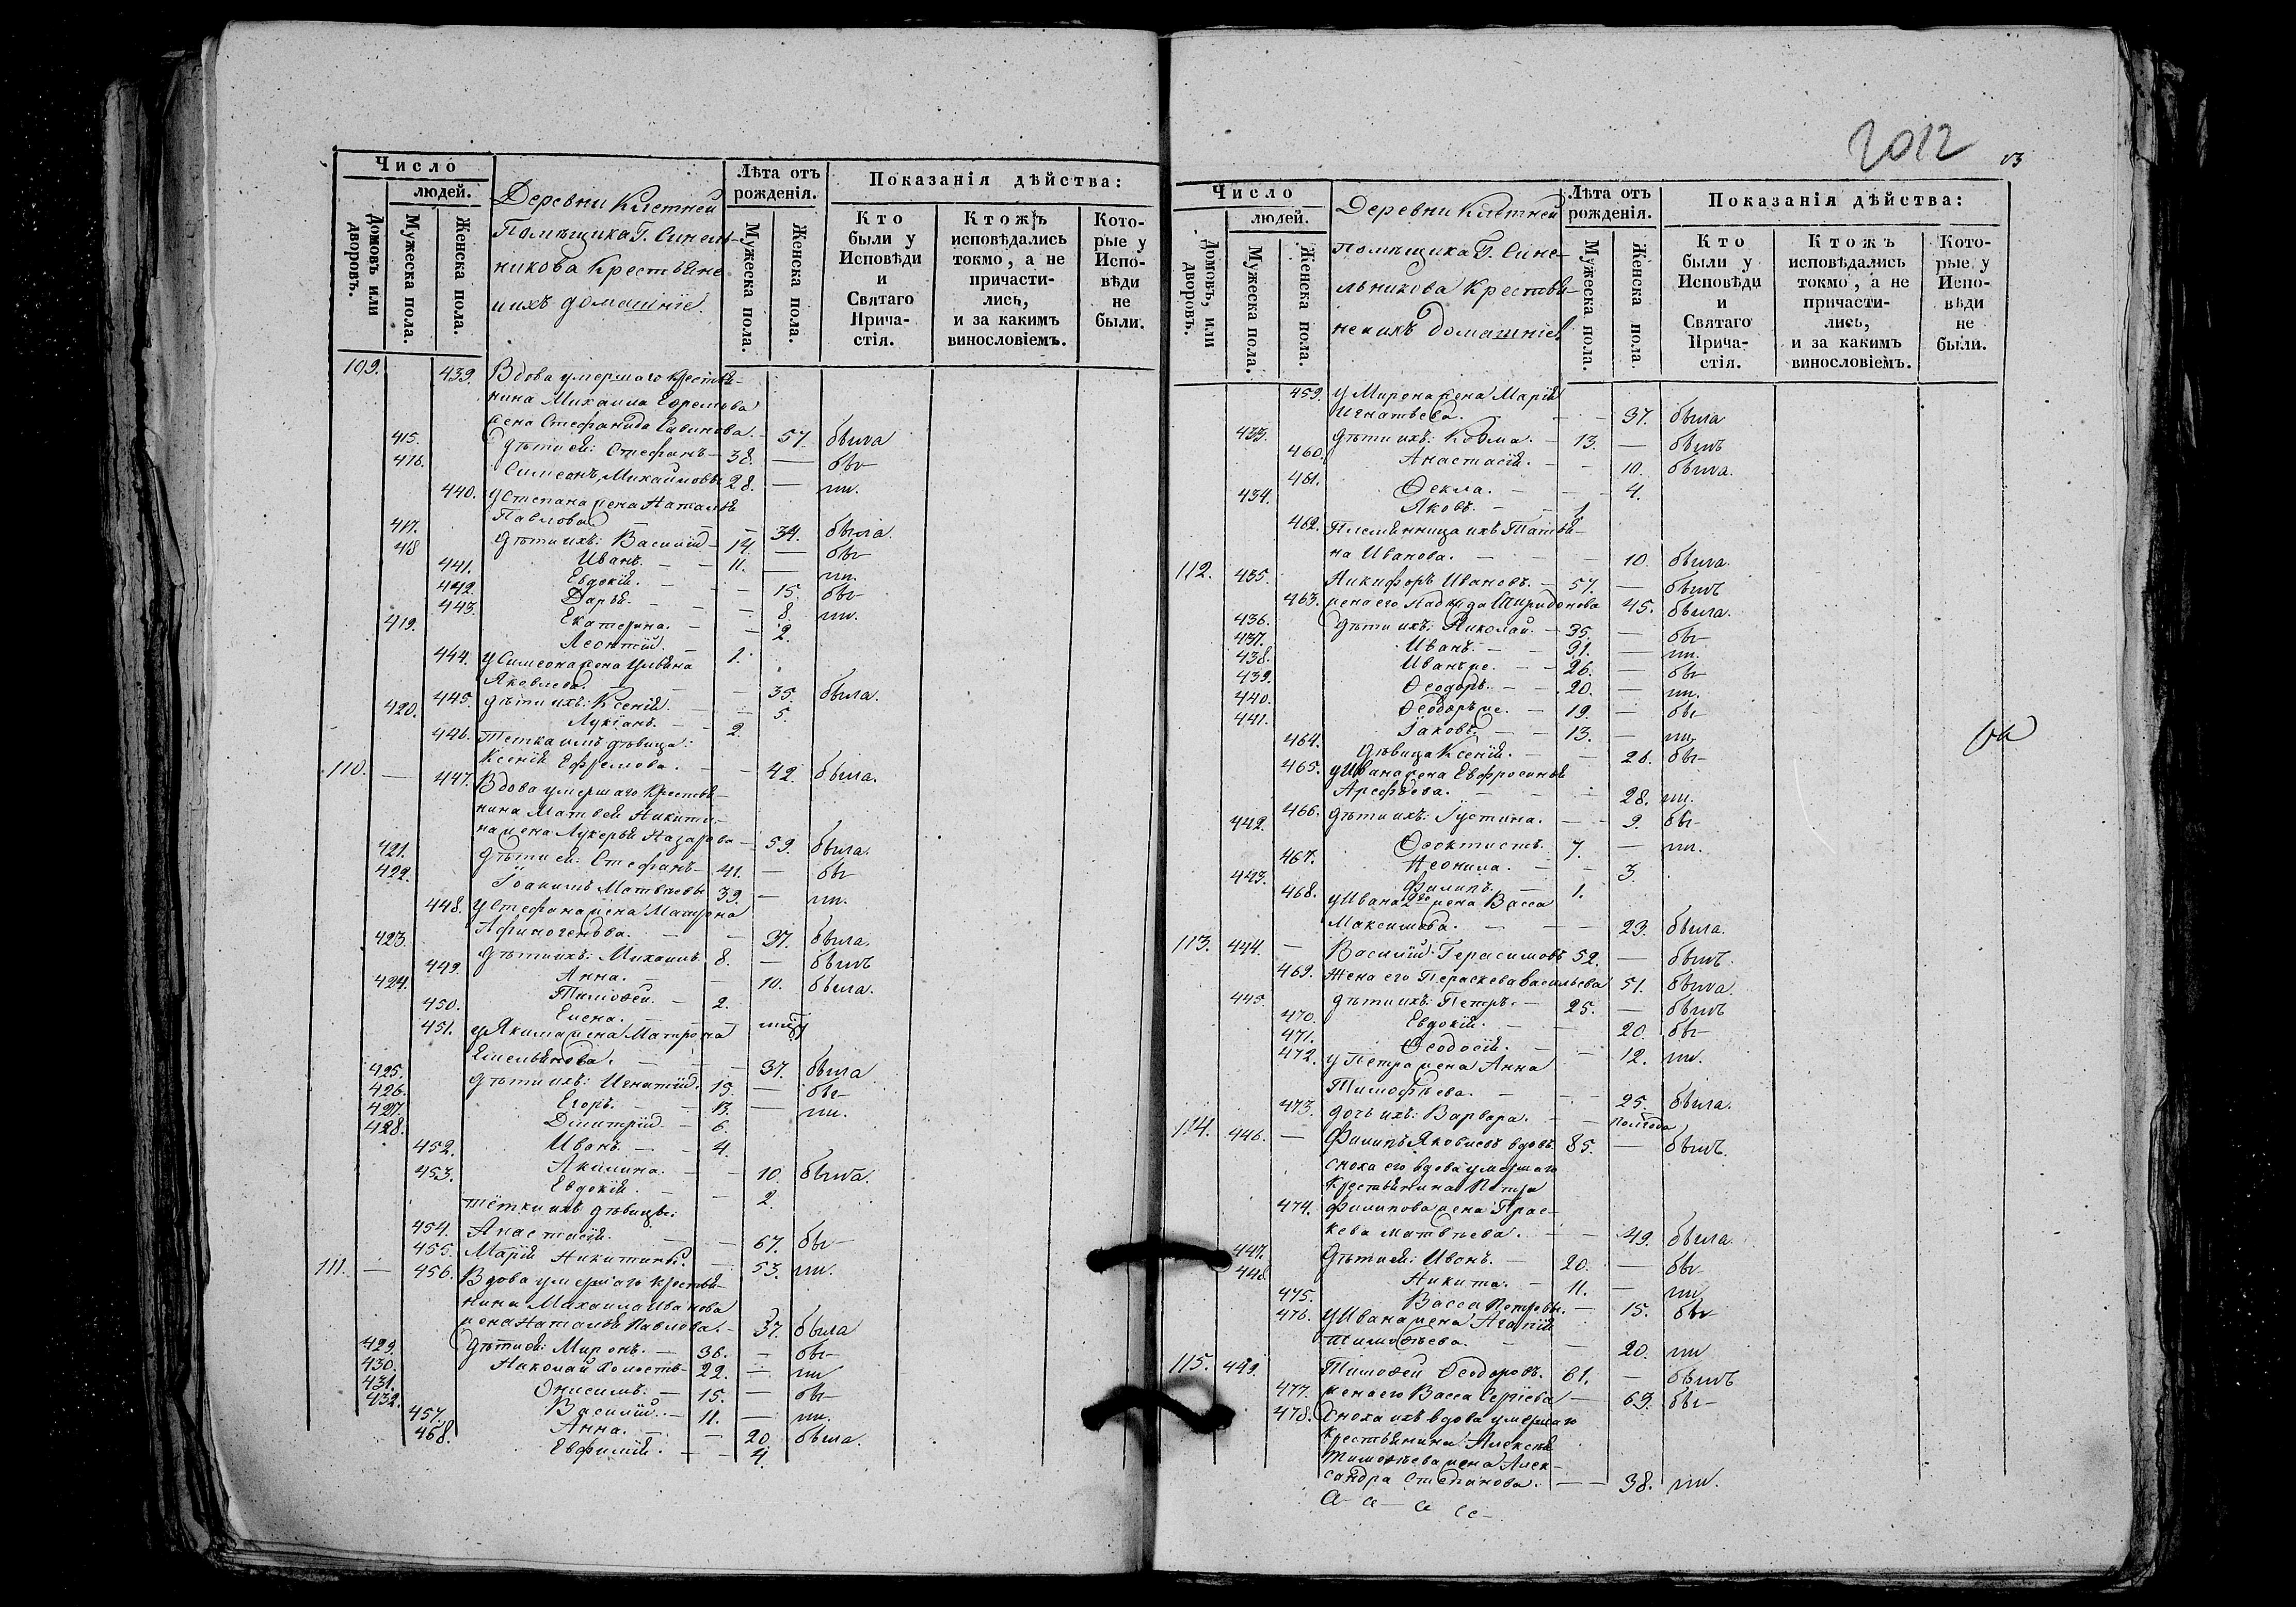 Число
людей.
Домовъ или дворовъ.
Мужеска пола.
Женска пола.
Деревни Клетней
Помѣщика Г. Синель-
никова Крестьяне
и ихъ домашніе.
Лѣта отъ рожденія.
Мужеска пола.
Женска пола.
Показанія дѣйства:
Кто были у Исповѣди и Святаго Прича- стія.
Ктожъ исповѣдались токмо, а не причасти- лись, и за какимъ винословіемъ.
Кото- рые у Испо- вѣди не были.
109. 439. Вдова умершаго крестья-
нина Михаила Ефремова
жена Стефанида Савинова. 57. была
415. Дѣти ей: Стефанъ 38. — бы-
416. Симеонъ Михайловы 28. — ли.
440. у Степана жена Наталья
Павлова 34. была.
417. дѣти ихъ: Василій 14. — бы-
418 Иванъ. 11. — ли.
441. Евдокія. 15. бы-
442. Дарья. 8. ли.
443. Екатерина. 2.
419. Леонтій. 1.
444. у Симеона жена Ульяна
Яковлева. 35. была.
445. дѣти ихъ: Ксенія. 5.
420. Лукіанъ. 2.
446. Тетка имъ дѣвица:
Ксенія Ефремова. 42. была.
110. — 447. Вдова умершаго крестья-
нина Матвея Никити-
на жена Лукерья Назарова 59. была.
421. дѣти ей: Стефанъ 41. — бы-
422. Іоакимъ Матвѣевы 39. — ли.
448. у Стефана жена Матрона
Афиногенова. 37. была.
423. дѣти ихъ: Михаилъ 8. — былъ
449. Анна. 10. была.
424. Тимофей. 2.
450. Елена.
451. у Якима жена Матрона
Емельянова. 37. была
425. дѣти ихъ: Игнатій. 15. — бы-
426. Егоръ. 13. — ли.
427. Димитрій 6.
428. Иванъ. 4.
452. Акилина. 10. была.
453. Евдокія. 2.
тётки ихъ дѣвицы:
454. Анастасія. 67. бы-
455. Марія Никитины. 53. ли.
111. — 456. Вдова умершаго крестья-
нина Михаила Иванова
жена Наталья Павлова. 37. была
429. Дѣти ей: Миронъ. 36. — бы-
430. Николай холостъ 22. — ли
431. Онисимъ. 15. — бы-
432. Василій. 11. — ли.
457. Анна. 20 была.
468. Евфимія. 4.
2012
Число
людей.
Домовъ, или дворовъ.
Мужеска пола.
Женска пола.
Деревни Клетней
помѣщика Г. Сине-
льникова Крестья-
не и ихъ домашніе.
Лѣта отъ рожденія.
Мужеска пола.
Женска пола.
Показанія дѣйства:
Кто были у Исповѣди и Святаго Прича- стія.
Ктожъ исповѣдались токмо, а не причасти- лись, и за какимъ винословіемъ.
Кото- рые у Испо- вѣди не были.
459. у Мирона жена Марія
Игнатьева. 37. была
433. дѣти ихъ: Козма. 13. — былъ
460. Анастасія. 10. была.
461. Ѳекла. 4.
434. Яковъ. 1.
462. Племянница ихъ Татья-
на Иванова. 10. была.
112. 435. Никифоръ Ивановъ. 57. — былъ
463. жена его Спиридонова 45. была.
436. дѣти ихъ: Николай. 35. — бы-
437. Иванъ. 31. — ли.
438. Иванъ же. 26. — бы-
439. Ѳеодоръ. 20. — ли.
440. Ѳеодоръ же. 19. — бы-
441. Іаковъ. 13. — ли.
464. дѣвица Ксенія. 26. бы-
465. у Ивана жена Евфросинья
Арефьева. 28. ли.
466. дѣти ихъ: Іустина. 9. бы-
442. Ѳеоктистъ. 7. — ли.
467. Неонила. 3.
443. Филипъ. 1.
468. у Ивана 2го жена Васса
Максимова. 23. была.
113. 444. — Василій Герасимовъ 52. — былъ.
469. Жена его Пераскева Васильева 51. была.
445. дѣти ихъ: Петръ. 25. — былъ
470. Евдокія. 20. бы-
471. Ѳеодосія. 12. ли.
472. у Петра жена Анна
Тимофѣева. 25. была.
473. дочь ихъ: Варвара. полгода
114. 446. — Филипъ Яковлевъ вдовъ. 85. — былъ.
сноха его вдова умершаго
крестьянина Петра
474. филипова жена Прас-
кева Матвѣева. 49. была.
447. Дѣти ей: Иванъ. 20. — бы-
448 Никита. 11. — ли
475. Васса Петровы. 15. бы-
476. у Ивана жена Агапія
Тимофѣева. 20. ли
115. 449. Тимофей Ѳеодоровъ. 61. — былъ
477. жена его Васса Сергѣева 63. бы-
478. Сноха ихъ вдова умершаго
крестьянина Алексѣя
Тимофѣева жена Алек-
сандра Степанова. 38. ли.